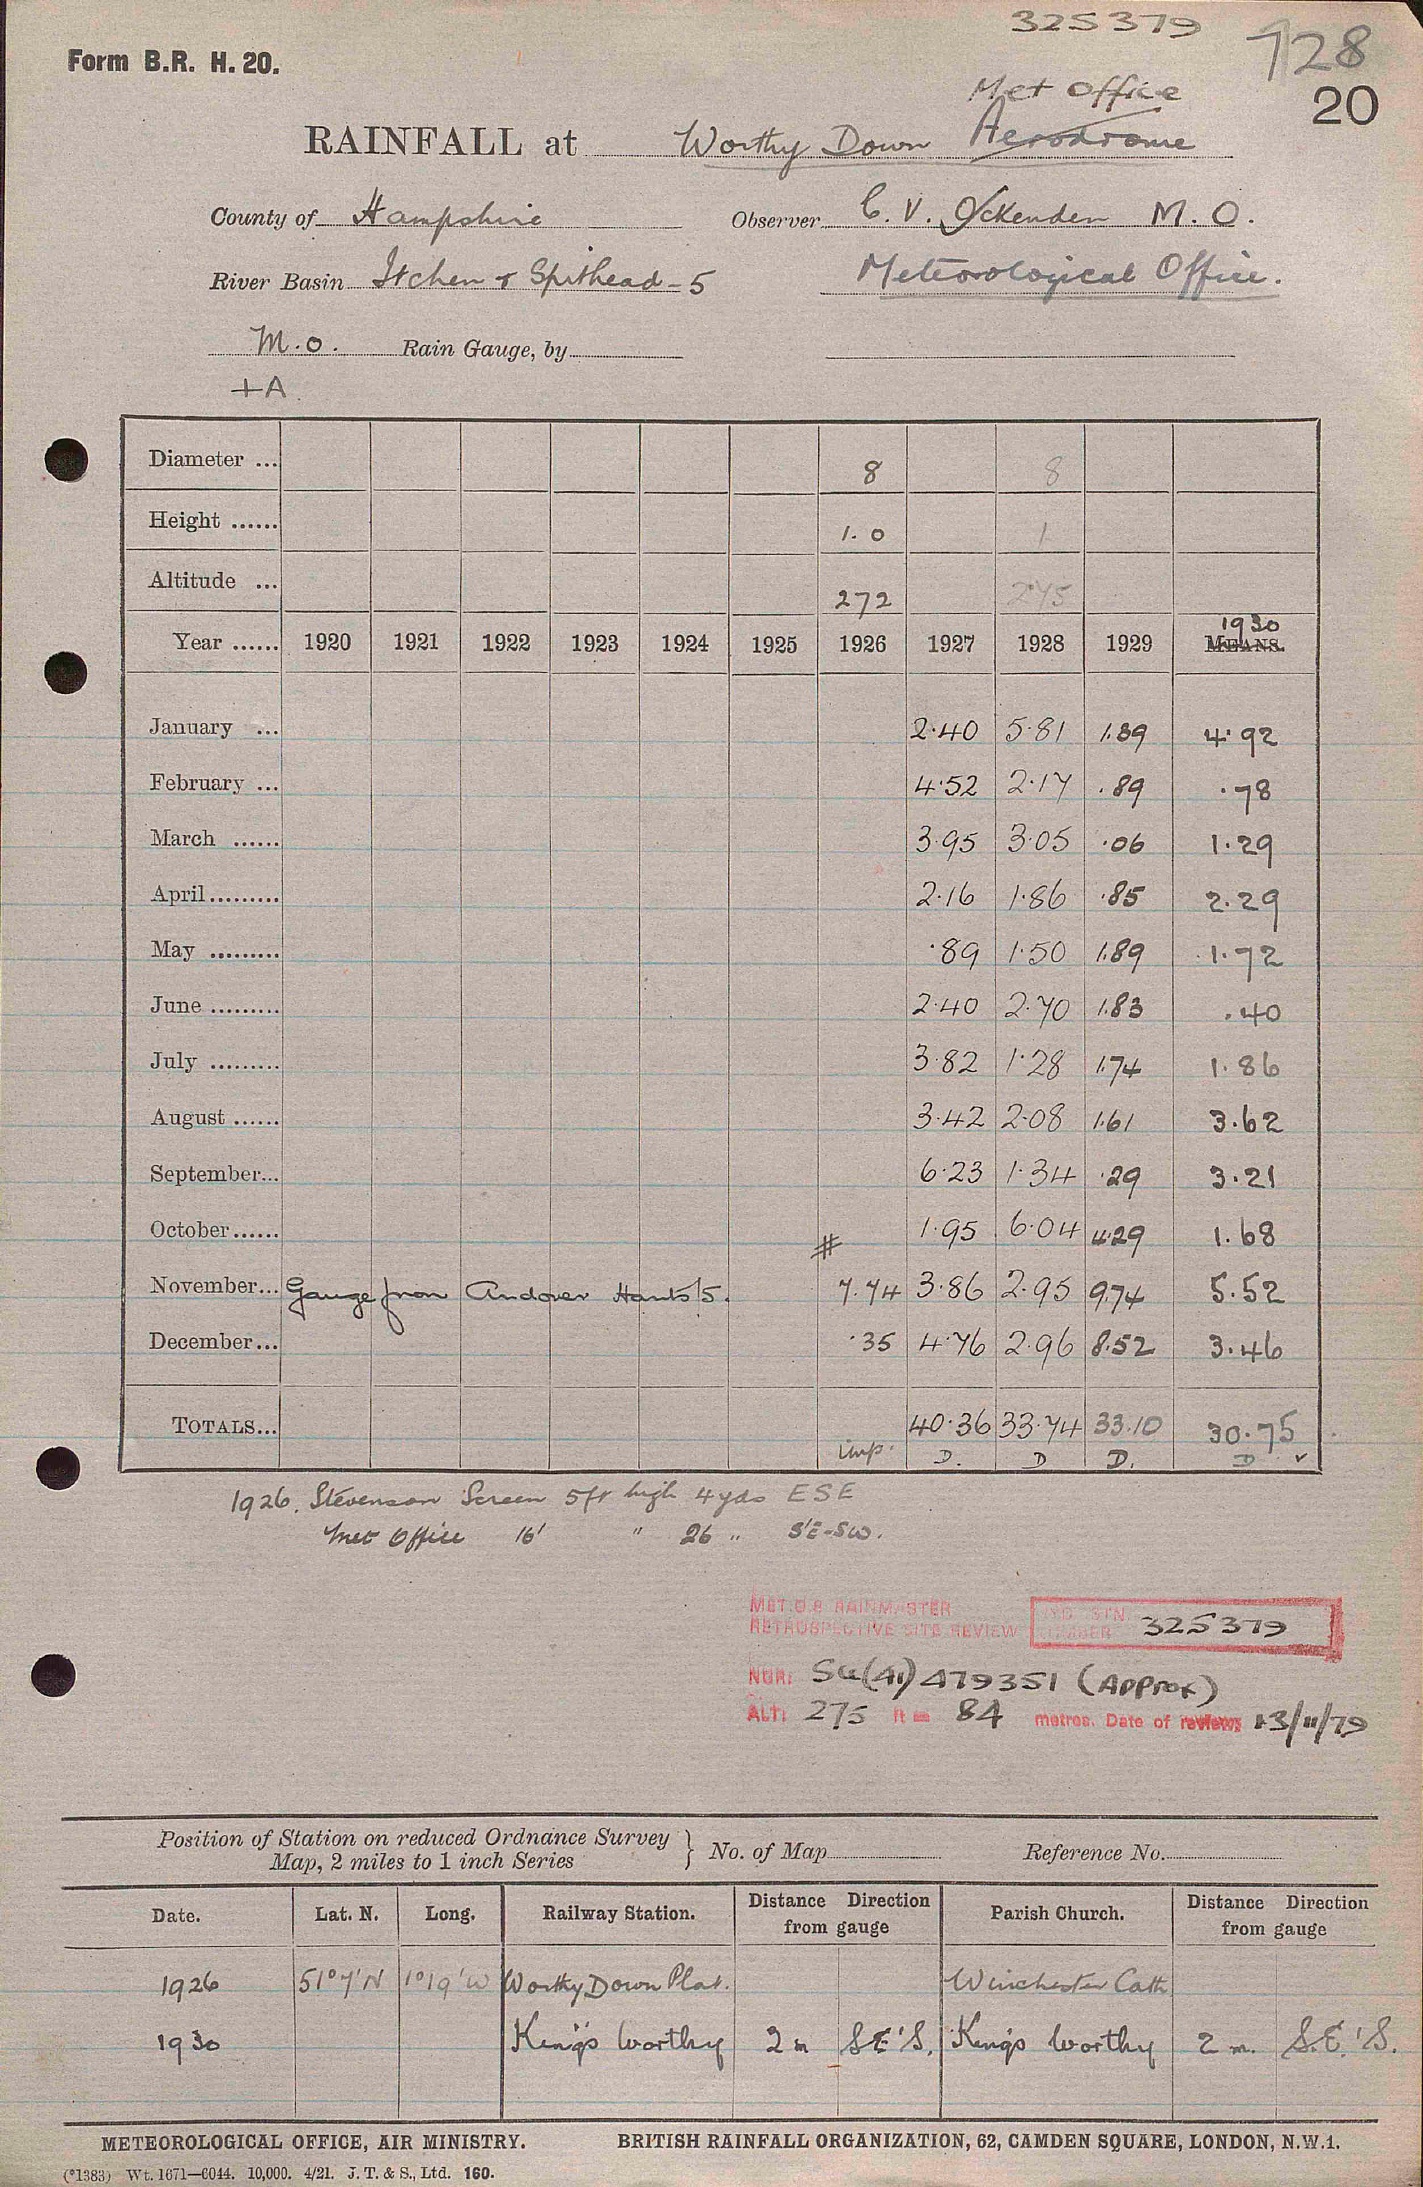 325379
728
Form B.R. H. 20.
20
Met Office
RAINFALL at Worthy Down Aerodrome
County of Hampshire Observer C. V. Ockenden M. O.
River Basin Itchen & Spithead - 5 Meteorological Office.
M. o. Rain Gauge, by
+A
Diameter ... 8 8
Height ...... 1. 0 1
Altitude ... 272 275
1930
Year ...... 1920 1921 1922 1923 1924 1925 1926 1927 1928 1929 MEANS.
January ... 2·40 5·81 1.39 4·92
February ... 4·52 2·17 ·89 ·78
March ...... 3·95 3·05 ·06 1·29
April......... 2·16 1·86 ·85 2·29
May ......... ·89 1·50 1.89 1·72
June ......... 2·40 2·70 1.83 ·40
July ......... 3·82 1·28 1.74 1·86
August ...... 3·42 2·08 1.61 3·62
September... 6·23 1·34 ·29 3·21
October...... # 1·95 6·04 4·29 1·68
November... Gauge from Andover Hants 5. 7.74 3·86 2·95 9.74 5·52
December... ·35 4·76 2·96 8.52 3·46
TOTALS... imp. 40·36 33·74 33.10 30·75
D. D D. D ✓
1926. Stevenson Screen 5ft high 4 yds ESE
Met Office 16' " 26 " S'E-SW.
MET.O.8 RAINMASTER
RETROSPECTIVE SITE REVIEW
STN NUMBER 325379
NGR: SU(41)479351 (Approx)
ALT: 275 ft = 84 metres. Date of review: 13/11/79
Position of Station on reduced Ordnance Survey
Map, 2 miles to 1 inch Series } No. of Map Reference No.
Date. Lat. N. Long. Railway Station. Distance Direction from gauge Parish Church. Distance Direction from gauge
1926 51°7'N 1°19'W Worthy Down Plat. Winchester Cath
1930 King's Worthy 2 m S.E'S. King's Worthy 2 m. S.E.'S.
METEOROLOGICAL OFFICE, AIR MINISTRY. BRITISH RAINFALL ORGANIZATION, 62, CAMDEN SQUARE, LONDON, N.W.1.
(*1383) Wt. 1671—6044. 10,000. 4/21. J. T. & S., Ltd. 160.